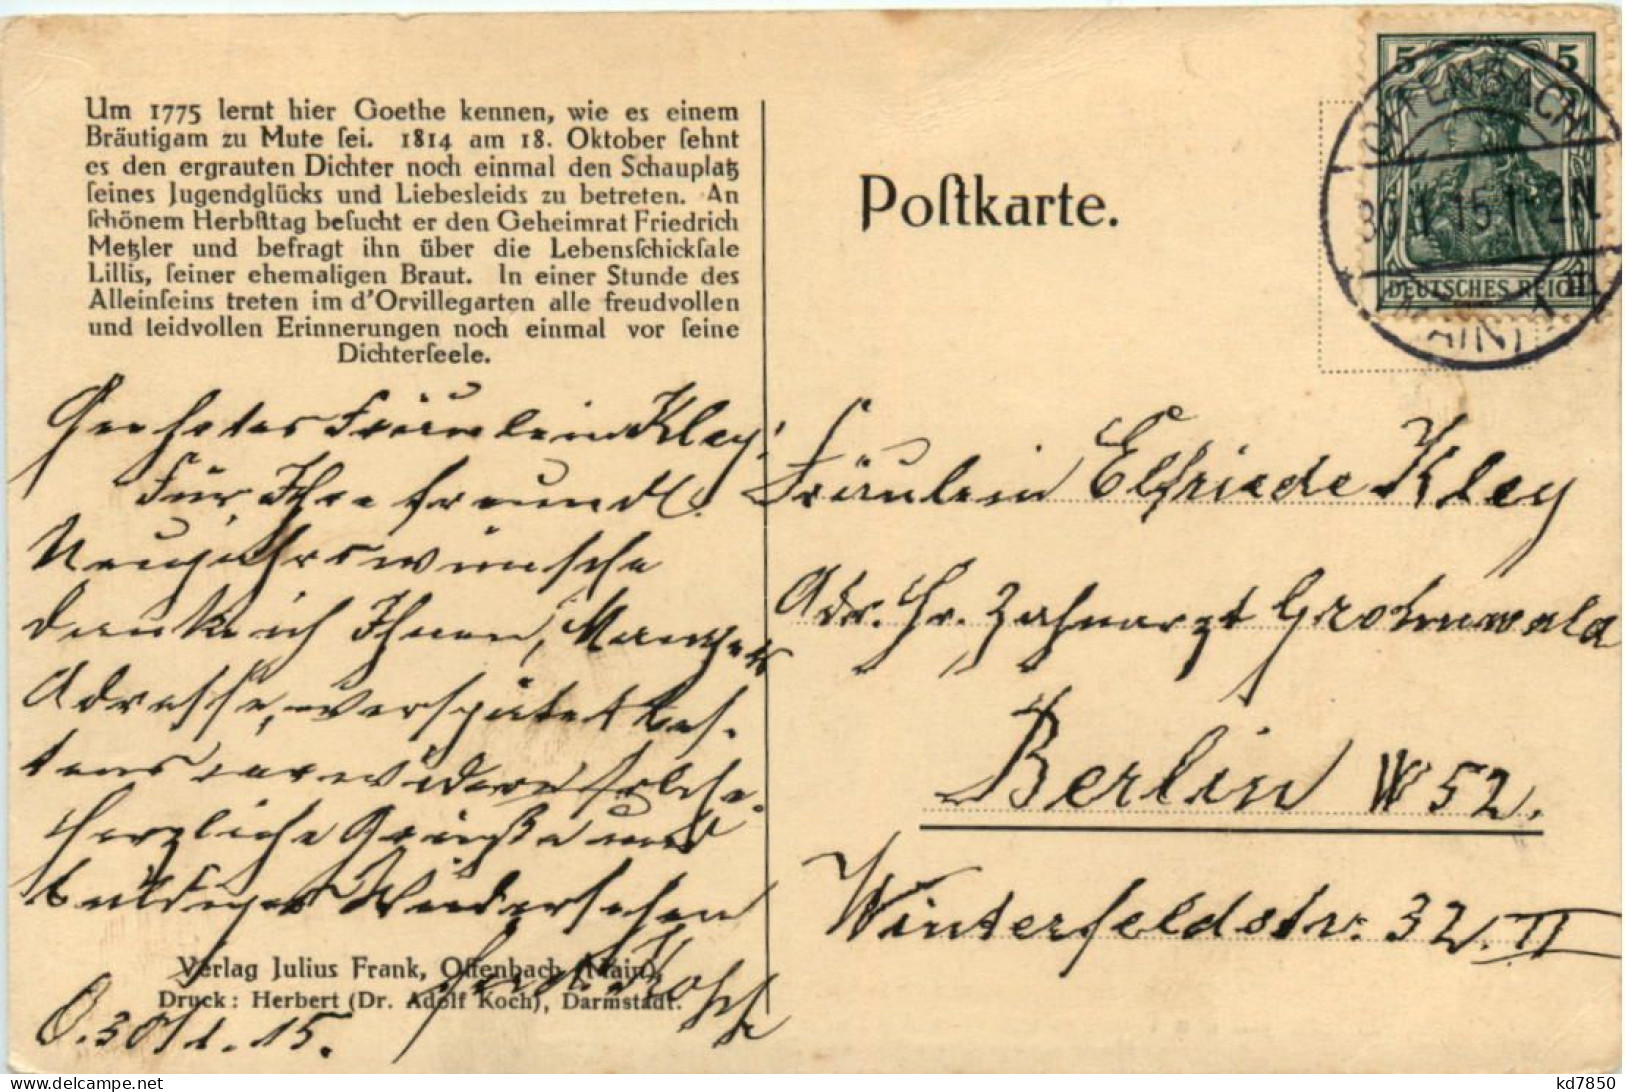 Um 1775 lernt hier Goethe kennen, wie es einem
Bräutigam zu Mute ſei. 1814 am 18. Oktober ſehnt
es den ergrauten Dichter noch einmal den Schauplatz
ſeines Jugendglücks und Liebesleids zu betreten. An
ſchönem Herbſttag beſucht er den Geheimrat Friedrich
Metzler und befragt ihn über die Lebensſchickſale
Lillis, ſeiner ehemaligen Braut. In einer Stunde des
Alleinſeins treten im d'Orvillegarten alle freudvollen
und leidvollen Erinnerungen noch einmal vor ſeine
Dichterſeele.
Geehrtes Fräulein Kley!
Für Ihre freundl.
Neujahrswünsche
danke ich Ihnen,
Adresse, verspätet bes-
tens erwidere solche.
Herzliche Grüße und
baldiges Wiedersehen
Verlag Julius Frank, Offenbach (Main).
Druck: Herbert (Dr. Adolf Koch), Darmstadt.
O. 30/1. 15.
Poſtkarte.
5 5
DEUTSCHES REICH
OFFENBACH
30.1.15.1-2N
* (MAIN) 1
Fräulein Elfriede Kley
Adr. Hr. Zahnarzt Grohnwald
Berlin W 52.
Winterfeldstr. 32. II
kd7850